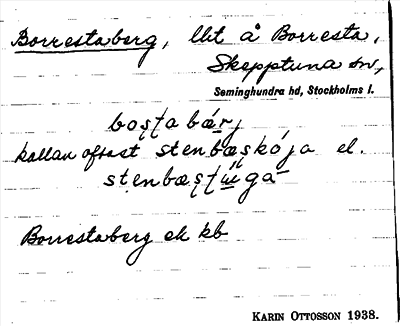 Borrestaberg, lht å Borresta,
Skepptuna sn,
Seminghundra hd, Stockholms l.
boşt̨a bǽrj
kallan oftast stenbæşkója el.
stenbæşt̨úgà
Borrestaberg ek kb
KARIN OTTOSSON 1938.